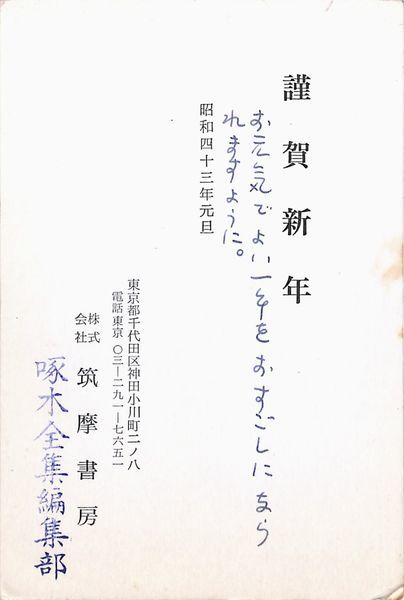 謹賀新年
お元気でよい一年をおすごしになら
れますように。
昭和四十三年元旦
東京都千代田区神田小川町二ノ八
電話東京〇三―二九一―七六五一
株式会社 筑摩書房
啄木全集編集部